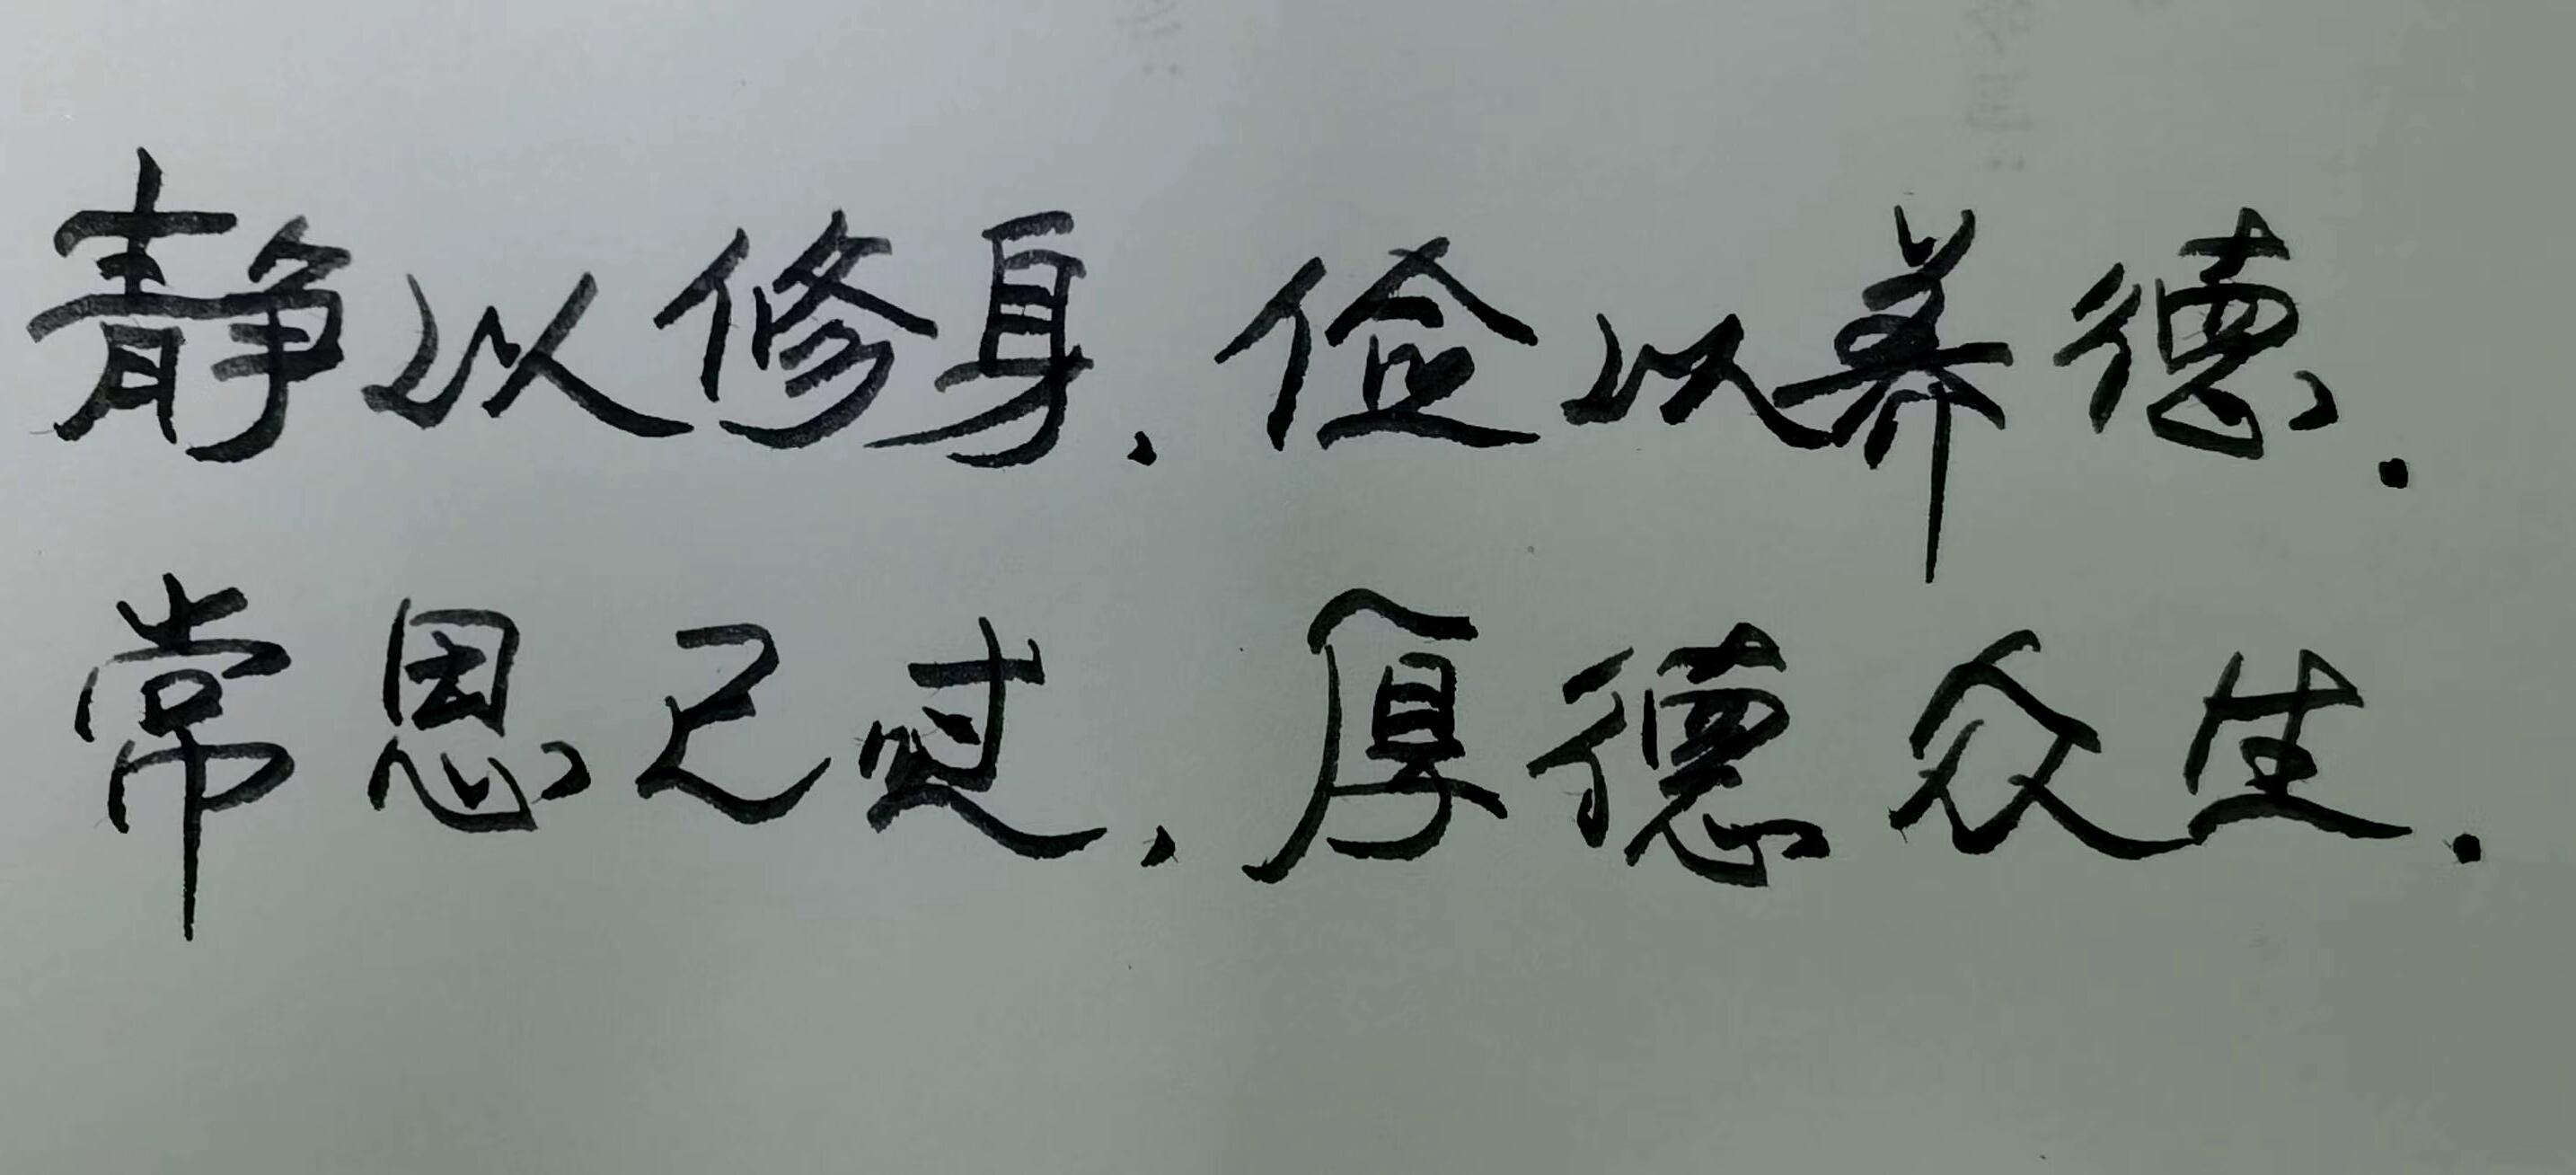 静以修身，俭以养德。
常恩己过，厚德众生。